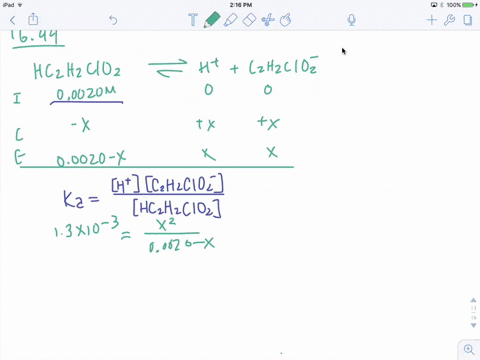 iPad
2:16 PM
100%
16.44
HC2H2ClO2 ⇌ H+ + C2H2ClO2-
I 0.0020M 0 0
C -x +x +x
E 0.0020-x x x
Ka = [H+][C2H2ClO2-] / [HC2H2ClO2]
1.3x10-3 = x2 / 0.0020-x